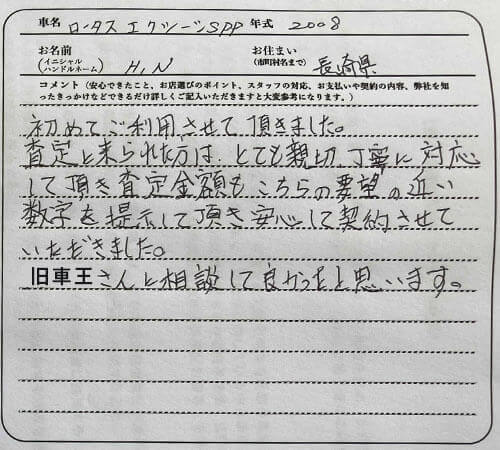 車名 ロータス エクシージSPP 年式 2008
お名前 お住まい
(イニシャル ハンドルネーム) H,N (市町村名まで) 長崎県
コメント (安心できたこと、お店選びのポイント、スタッフの対応、お支払いや契約の内容、弊社を知
ったきっかけなどできるだけ詳しくご記入いただきますと大変参考になります。)
初めてご利用させて頂きました。
査定に来られた方は、とても親切、丁寧に対応
して頂き査定金額もこちらの要望の近い
数字を提示して頂き安心して契約させて
いただきました。
旧車王さんに相談して良かったと思います。